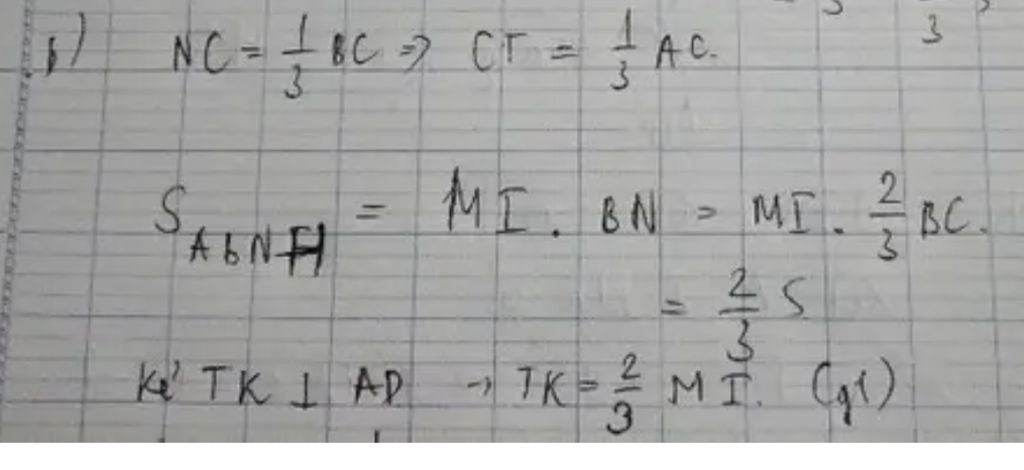 b) NC = 1/3 BC => CT = 1/3 AC.
S ABNH = MI. BN = MI. 2/3 BC.
= 2/3 S
Kẻ TK ⊥ AD → TK = 2/3 MI. (gt)